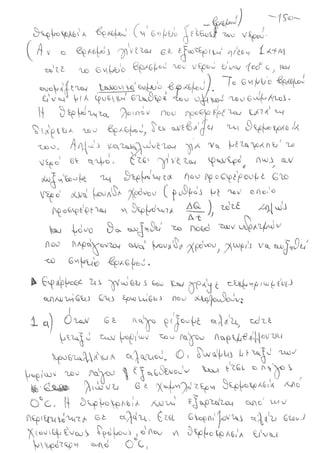 -150-
βρασμού)
θερμοκρασία βρασμού (ή σημείο ζέσεως του νερού.
(Αν ο βρασμός γίνεται σε εξωτερική πίεση 1atm
τότε το σημείο βρασμού του νερού είναι 100°C, και
ονομάζεται σημείο βρασμού). Το σημείο βρασμού
είναι μια φυσική σταθερά του σώματος.
Η θερμότητα λοιπόν που προσφέρεται κατά τη
διάρκεια του βρασμού, δεν ανεβάζει τη θερμοκρασία
του. Απλώς καταναλώνεται για να μετατραπεί το
νερό σε ατμό. Έτσι γίνεται φανερό, πως αν
αυξήσουμε τη θερμότητα που προσφέρουμε στο
νερό ανά μονάδα χρόνου (ρυθμός με τον οποίο
προσφέρεται η θερμότητα ΔQ/Δt), τότε απλώς
και μόνο θα αυξηθεί το ποσό των υδρατμών
που παράγονται ανά μονάδα χρόνου, χωρίς να αυξηθεί
το σημείο βρασμού.
Εφάρμοσε τις γνώσεις σου και γράψε τεκμηριωμένες
απαντήσεις στις ερωτήσεις που ακολουθούν:
1α) Όταν σε πάγο ρίξουμε αλάτι, τότε
μεταξύ των μορίων του πάγου παρεμβάλλονται
κρυσταλλάκια αλατιού. Οι δυνάμεις μεταξύ των
μορίων του πάγου εξασθενούν και έτσι ο πάγος
λιώνει σε χαμηλότερη θερμοκρασία από
0°C. Η θερμοκρασία αυτή εξαρτάται από την
περιεκτικότητα σε αλάτι. Έτσι σκορπίζοντας αλάτι στους
χιονισμένους δρόμους, όπου η θερμοκρασία είναι
μικρότερη από 0°C.